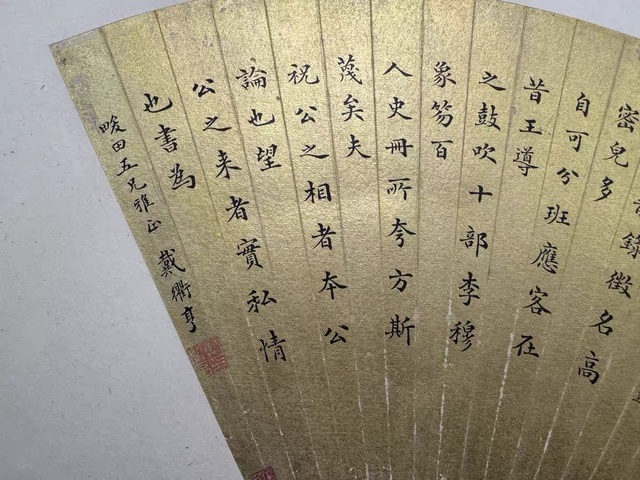 錄徵名高
密兒多
自可分班應客在
昔王導
之鼓吹十部李穆
象笏百
人史册所夸方斯
蔑矣夫
祝公之相者本公
論也望
公之来者實私情
也書為
畯田五兄雅正 戴衢亨